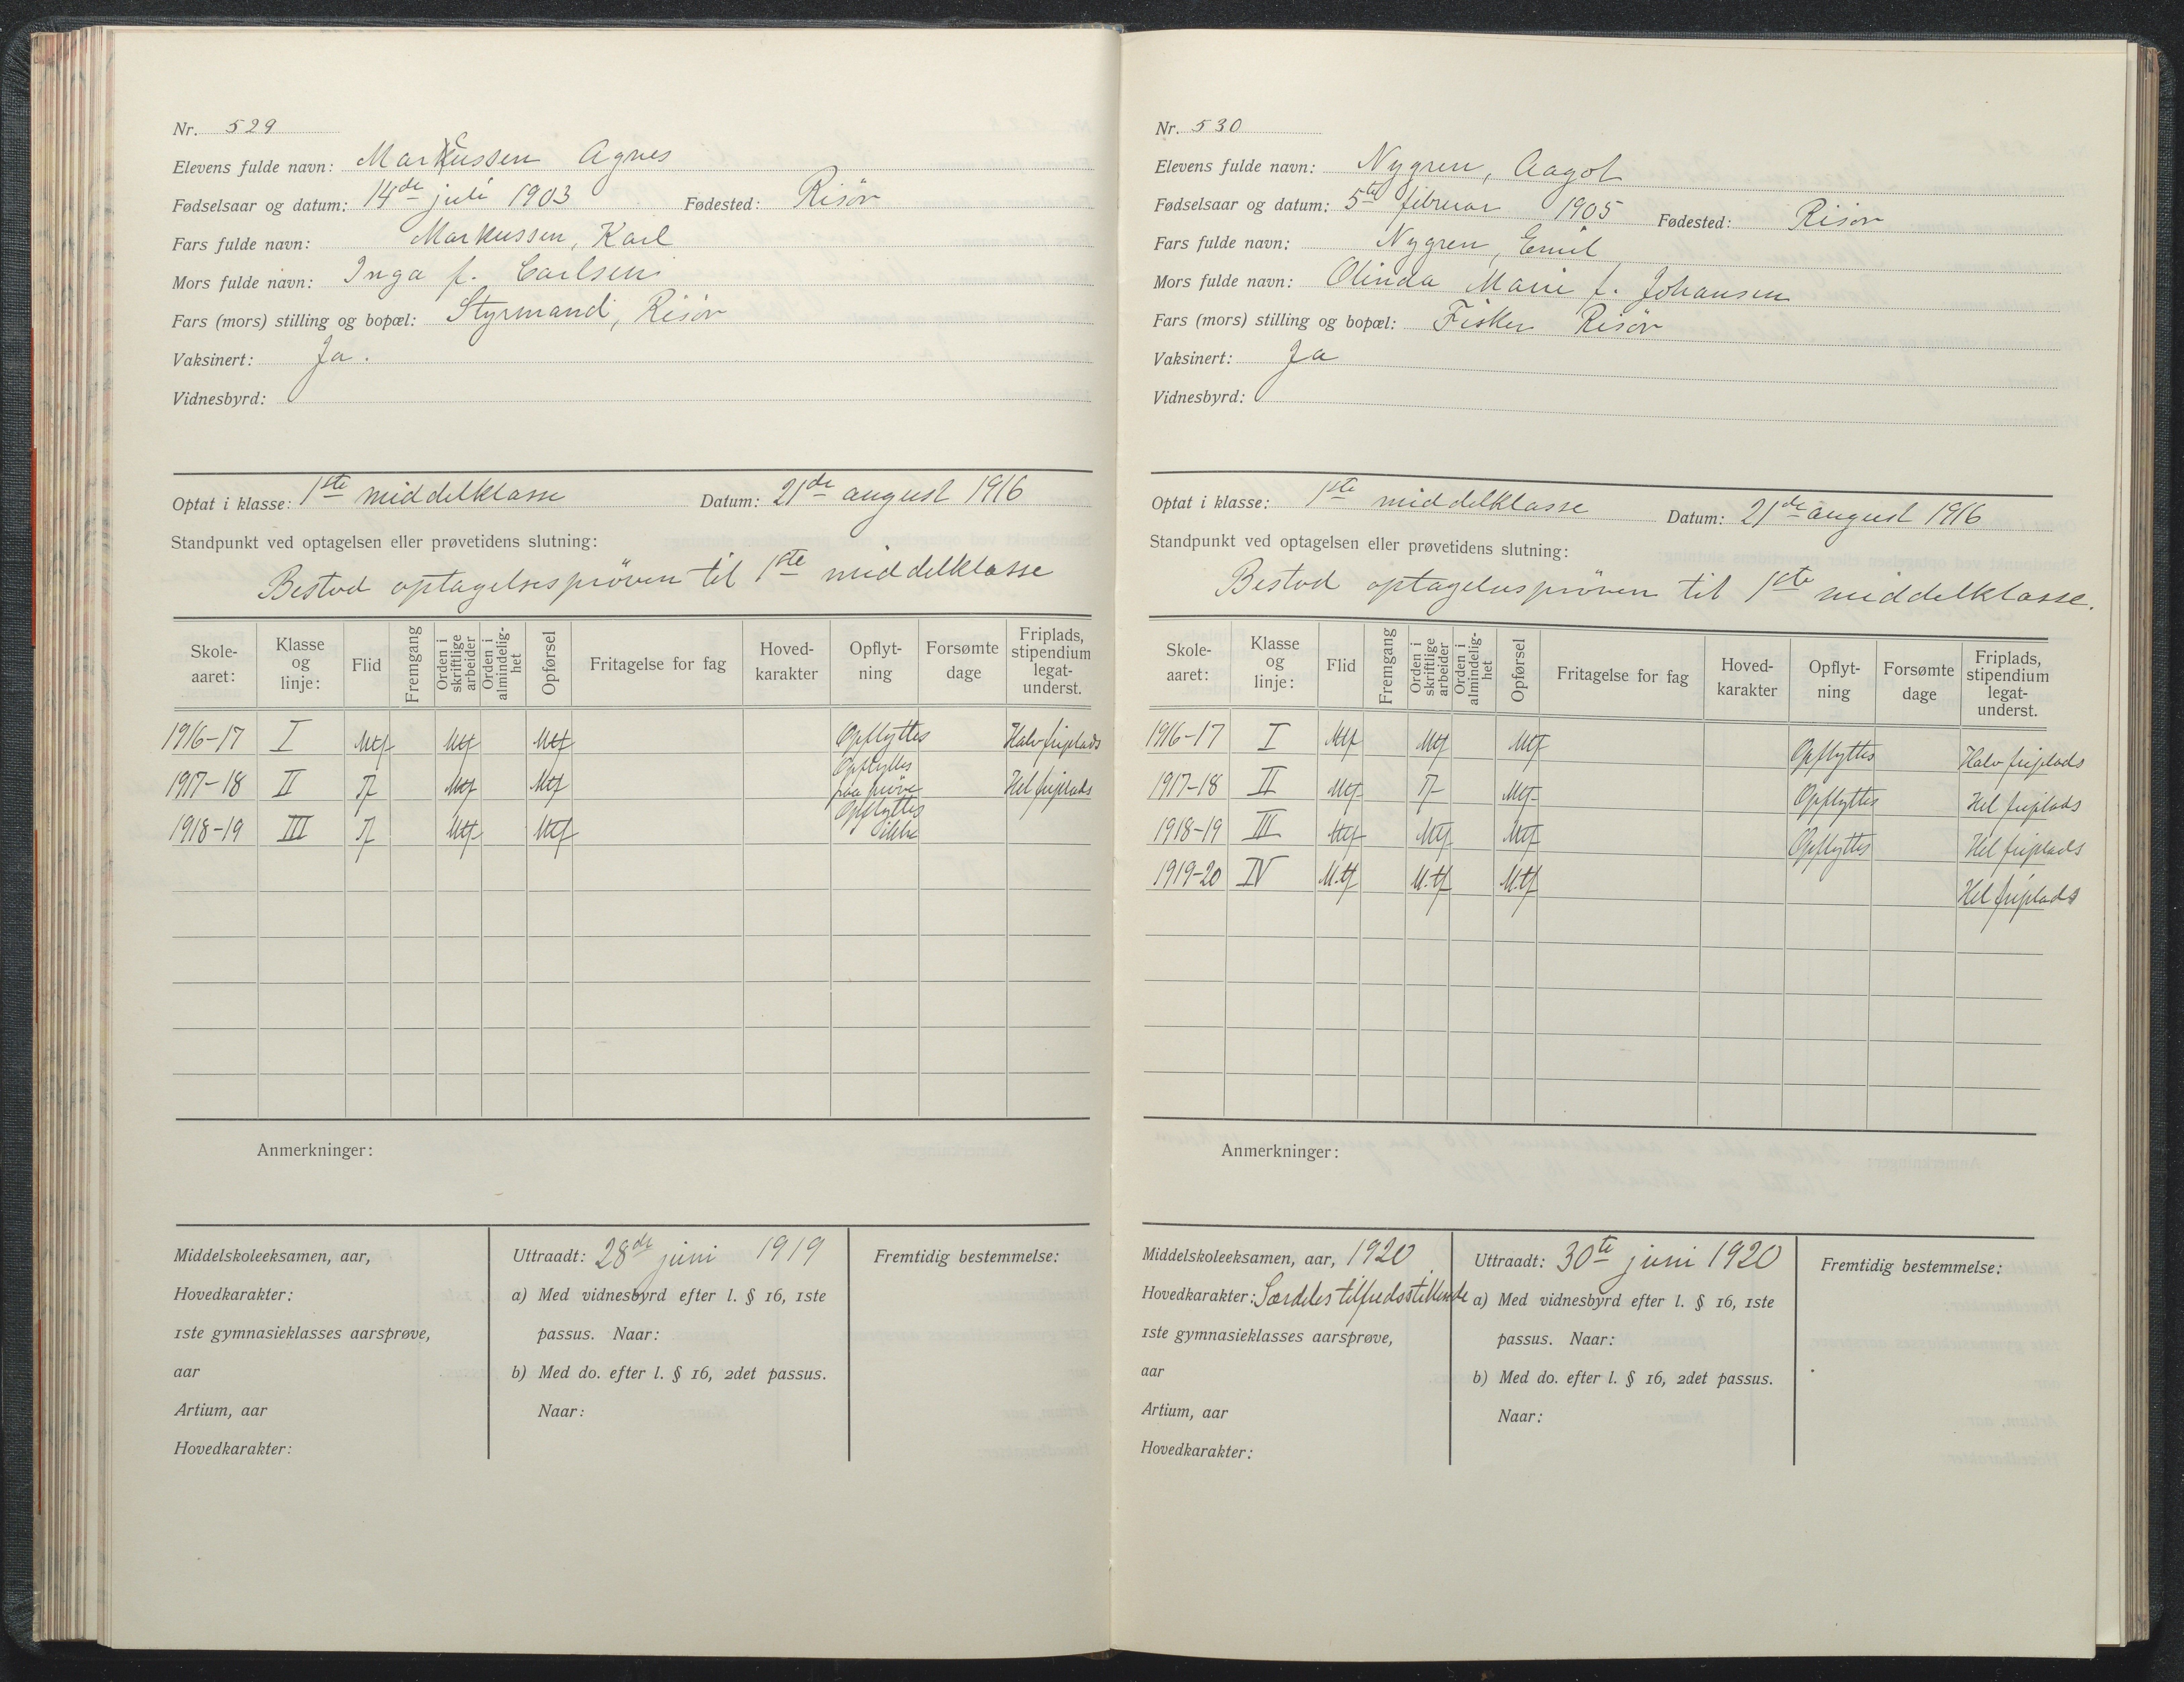 Nr. 529
Elevens fulde navn: Markussen Agnes
Fødselsaar og datum: 14de juli 1903 Fødested: Risør
Fars fulde navn: Markussen, Karl
Mors fulde navn: Inga f. Carlsen
Fars (mors) stilling og bopæl: Styrmand, Risør
Vaksinert: Ja.
Vidnesbyrd:
Optat i klasse: 1ste middelklasse Datum: 21de august 1916
Standpunkt ved optagelsen eller prøvetidens slutning:
Bestod optagelsesprøven til 1ste middelklasse
Skoleaaret: Klasse og linje: Flid Fremgang Orden i skriftlige arbeider Orden i almindelighet Opførsel Fritagelse for fag Hovedkarakter Opflytning Forsømte dage Friplads, stipendium legatunderst.
1916-17 I Mtf Mtf Mtf Opflyttes Halv friplads
1917-18 II Tf Mtf Mtf Opflyttes paa prøve Hel friplads
1918-19 III Tf Mtf Mtf Opflyttes ikke
Anmerkninger:
Middelskoleeksamen, aar,
Hovedkarakter:
1ste gymnasieklasses aarsprøve,
aar
Artium, aar
Hovedkarakter:
Uttraadt: 28de juni 1919
a) Med vidnesbyrd efter l. § 16, 1ste
passus. Naar:
b) Med do. efter l. § 16, 2det passus.
Naar:
Fremtidig bestemmelse:
Nr. 530
Elevens fulde navn: Nygren, Aagot
Fødselsaar og datum: 5te februar 1905 Fødested: Risør
Fars fulde navn: Nygren, Emil
Mors fulde navn: Olinda Marie f. Johansen
Fars (mors) stilling og bopæl: Fisker Risør
Vaksinert: Ja
Vidnesbyrd:
Optat i klasse: 1ste middelklasse Datum: 21de august 1916
Standpunkt ved optagelsen eller prøvetidens slutning:
Bestod optagelsesprøven til 1ste middelklasse.
Skoleaaret: Klasse og linje: Flid Fremgang Orden i skriftlige arbeider Orden i almindelighet Opførsel Fritagelse for fag Hovedkarakter Opflytning Forsømte dage Friplads, stipendium legatunderst.
1916-17 I Mtf Mtf Mtf Opflyttes Halv friplads
1917-18 II Mtf Tf Mtf Opflyttes Hel friplads
1918-19 III Mtf Mtf Mtf Opflyttes Hel friplads
1919-20 IV M.tf M.tf M.tf Hel friplads
Anmerkninger:
Middelskoleeksamen, aar, 1920
Hovedkarakter: Særdeles tilfredsstillende
1ste gymnasieklasses aarsprøve,
aar
Artium, aar
Hovedkarakter:
Uttraadt: 30te juni 1920
a) Med vidnesbyrd efter l. § 16, 1ste
passus. Naar:
b) Med do. efter l. § 16, 2det passus.
Naar:
Fremtidig bestemmelse: